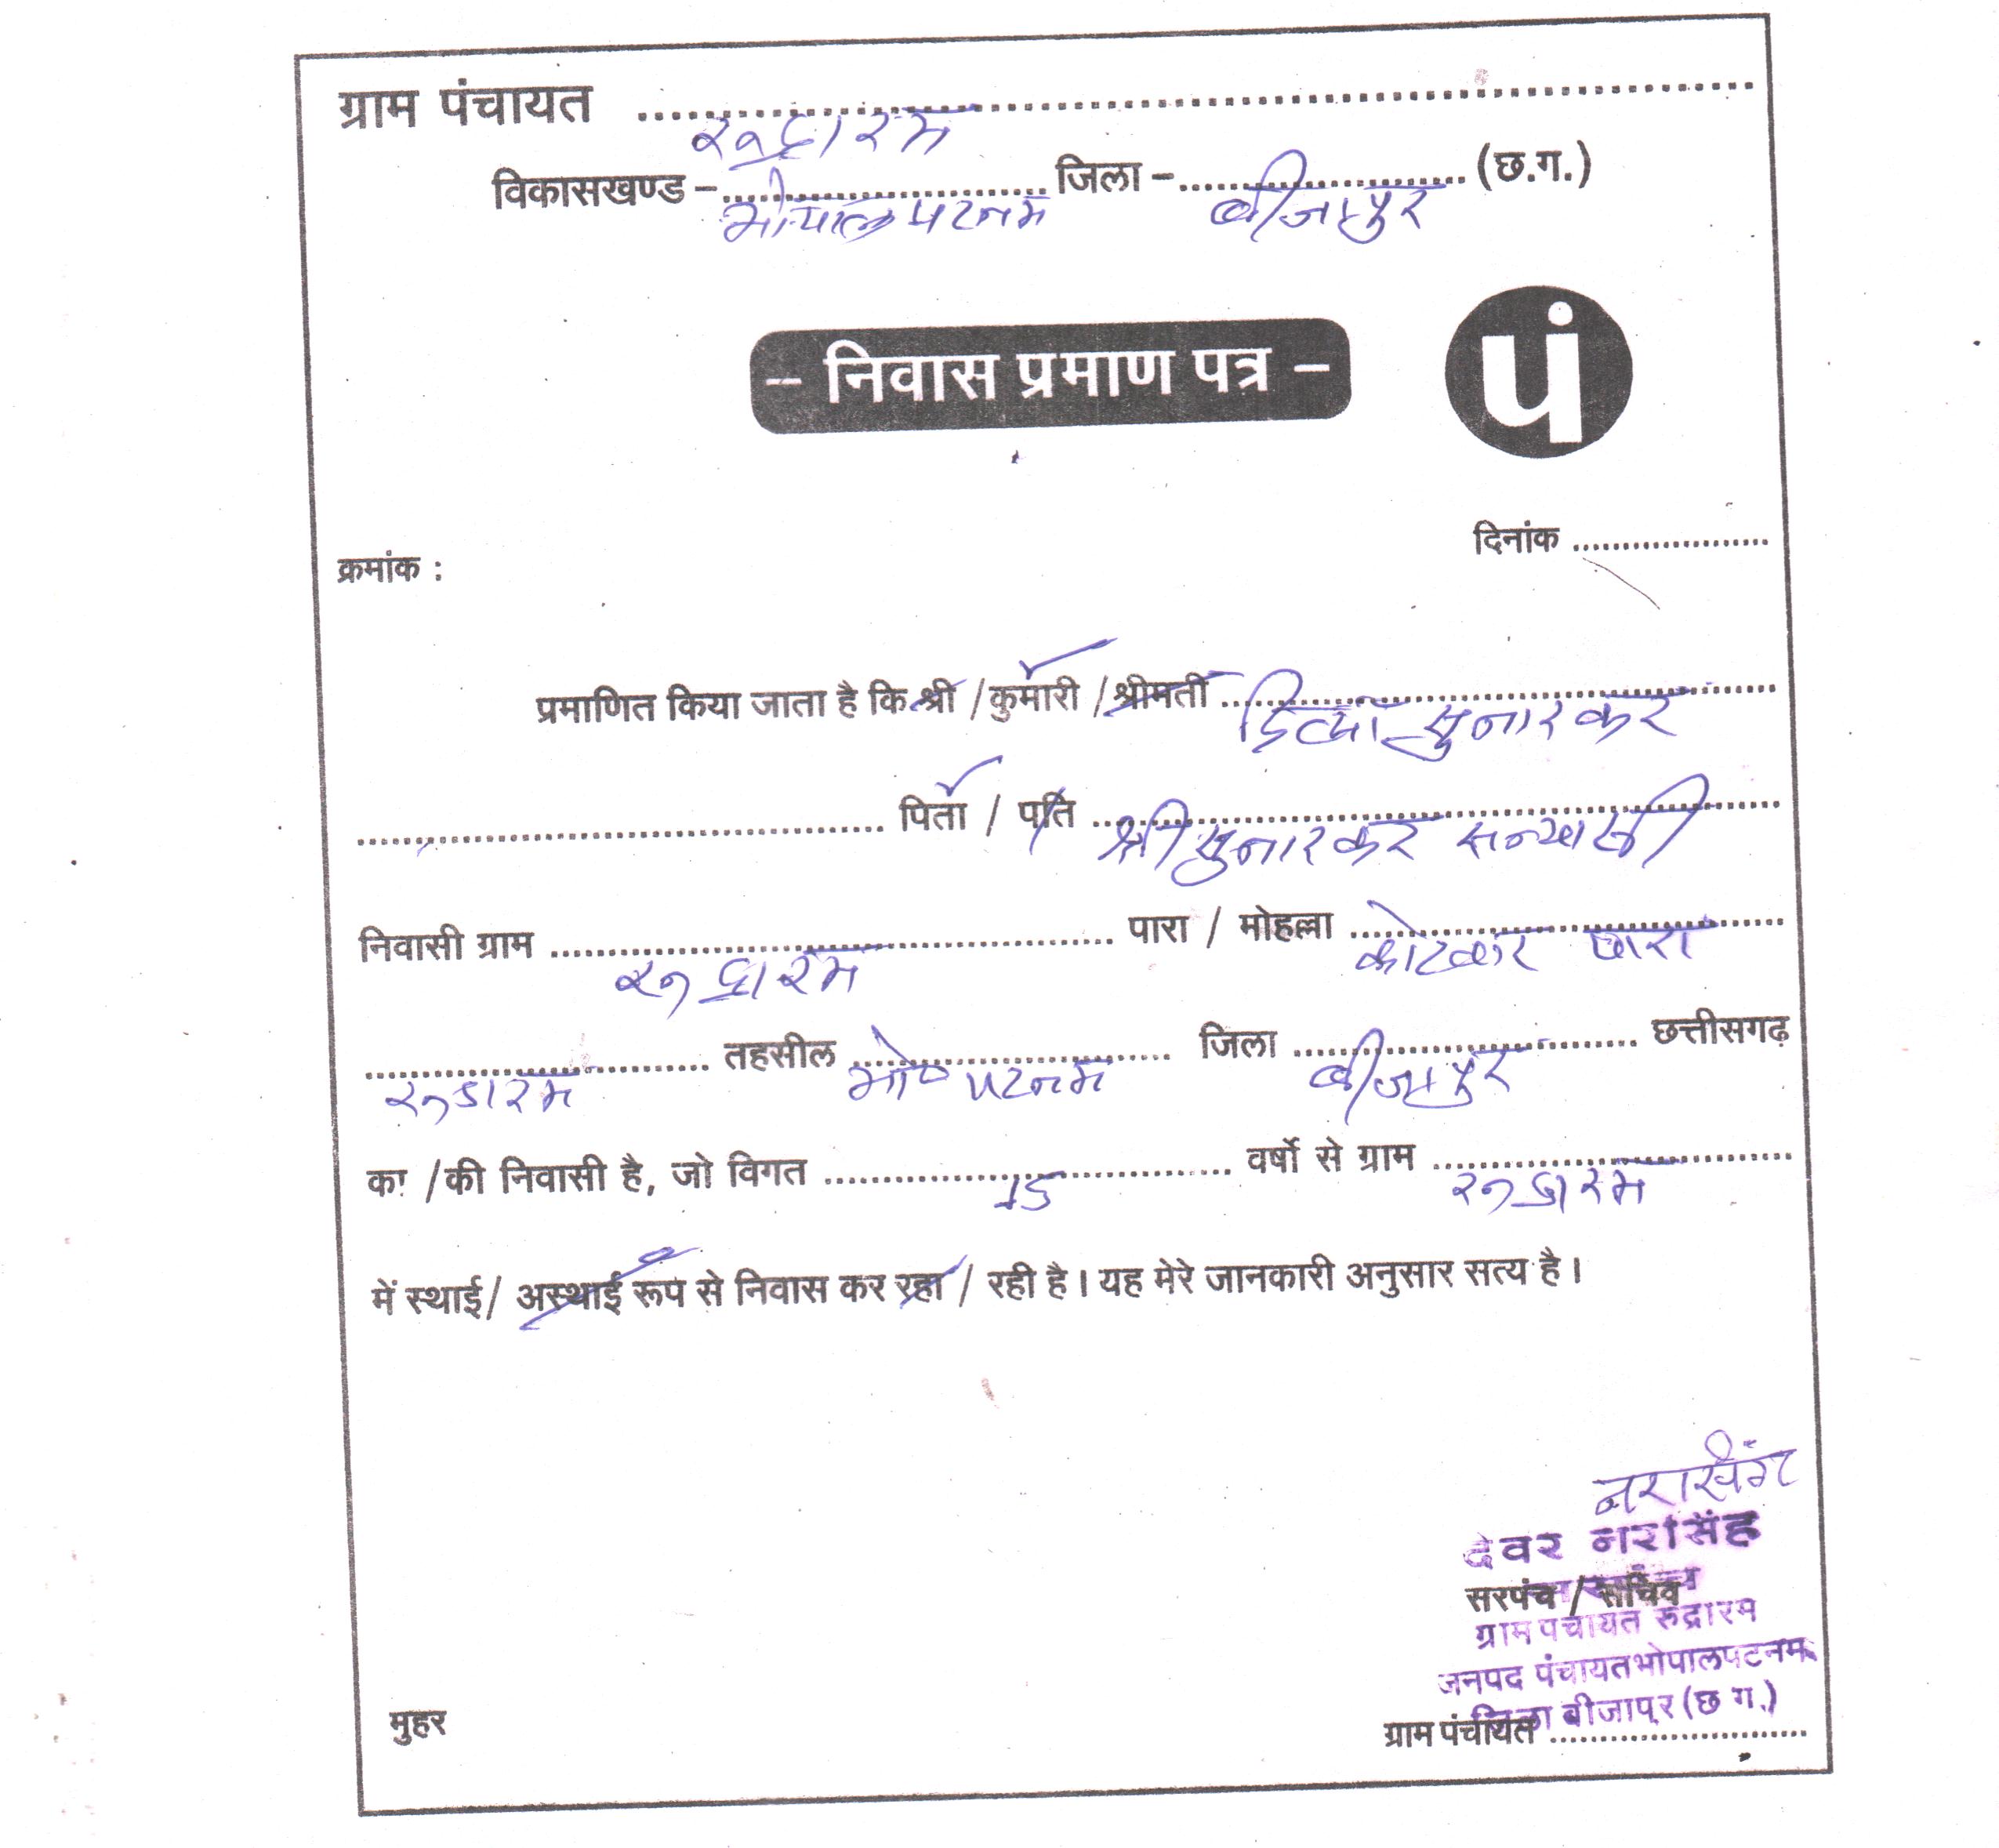 ग्राम पंचायत ........ रूद्रारम
विकासखण्ड – भोपालपटनम जिला – बीजापुर (छ.ग.)
– निवास प्रमाण पत्र –
पं
दिनांक ....................
क्रमांक :
प्रमाणित किया जाता है कि श्री / कुमारी / श्रीमती दिव्या सुनारकर
........ पिता / पति श्री सुनारकर सन्यासी
निवासी ग्राम रूद्रारम पारा / मोहल्ला कोटवार पारा
रूद्रारम तहसील भो० पटनम जिला बीजापुर छत्तीसगढ़
का / की निवासी है, जो विगत 15 वर्षो से ग्राम रूद्रारम
में स्थाई / अस्थाई रूप से निवास कर रहा / रही है। यह मेरे जानकारी अनुसार सत्य है।
देवर नरसिंह
सरपंच / सचिव
ग्राम पंचायत रूद्रारम
जनपद पंचायत भोपालपटनम
जिला बीजापुर (छ ग.)
मुहर
ग्राम पंचायत ........................